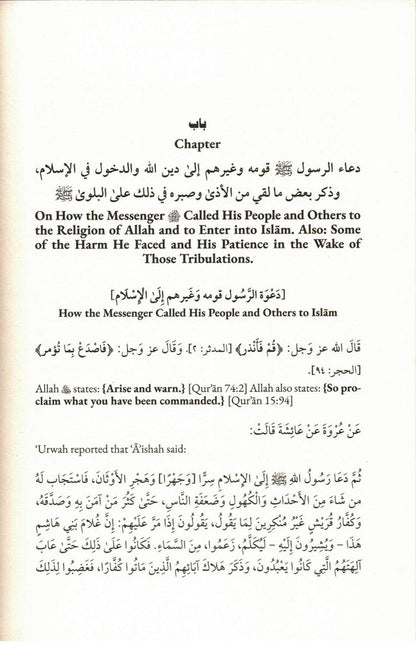 باب
Chapter
دعاء الرسول ﷺ قومه وغيرهم إلىٰ دين الله والدخول في الإسلام،
وذكر بعض ما لقي من الأذىٰ وصبره في ذلك علىٰ البلوىٰ ﷺ
On How the Messenger ﷺ Called His People and Others to
the Religion of Allah and to Enter into Islām. Also: Some
of the Harm He Faced and His Patience in the Wake of
Those Tribulations.
[دَعْوَة الرَّسُول قومه وَغَيرهم إِلَىٰ الْإِسْلَام]
How the Messenger Called His People and Others to Islām
قَالَ الله عز وَجل: ﴿قُمْ فَأَنْذر﴾ [المدثر: ٢]. وَقَالَ عز وَجل: ﴿فَاصْدَعْ بِمَا تُؤمر﴾
[الحجر: ٩٤].
Allah states: {Arise and warn.} [Qur’ān 74:2] Allah also states: {So pro-
claim what you have been commanded.} [Qur’ān 15:94]
عَنْ عُرْوَةَ عَنْ عَائِشَةَ قَالَتْ:
‘Urwah reported that ‘Ā’ishah said:
ثُمَّ دَعَا رَسُولُ اللهِ ﷺ إِلَىٰ الإِسْلَامِ سِرًّا [وَجَهْرًا] وَهَجْرِ الأَوْثَانِ، فَاسْتَجَابَ لَهُ
من شَاءَ مِنَ الأَحْدَاثِ وَالْكُهُولِ وَضَعَفَةِ النَّاسِ، حَتَّىٰ كَثُرَ مَنْ آمَنَ بِهِ وَصَدَّقَهُ،
وَكُفَّارُ قُرَيْشٍ غَيْرُ مُنْكِرِينَ لِمَا يَقُولُ، يَقُولُونَ إِذَا مَرَّ عَلَيْهِمْ: إِنَّ غُلَامَ بَنِي هَاشِمٍ
هَذَا – وَيُشِيرُونَ إِلَيْهِ – لَيُكَلَّمُ، زَعَمُوا، مِنَ السَّمَاءِ. فَكَانُوا عَلَىٰ ذَلِكَ حَتَّىٰ عَابَ
آلِهَتَهُمُ الَّتِي كَانُوا يَعْبُدُونَ، وَذَكَرَ هَلَاكَ آبَائِهِمُ الَّذِينَ مَاتُوا كُفَّارًا، فَغَضِبُوا لِذَلِكَ